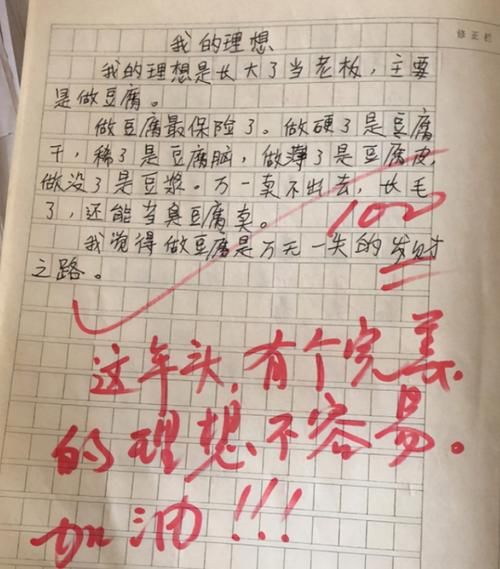 修正栏
我的理想
我的理想是长大了当老板，主要
是做豆腐。
做豆腐最保险了。做硬了是豆腐
干，稀了是豆腐脑，做薄了是豆腐皮，
做没了是豆浆。万一卖不出去，长毛
了，还能当臭豆腐卖。
我觉得做豆腐是万无一失的发财
之路。
100
这年头，有个完美
的理想不容易。
加油！！！